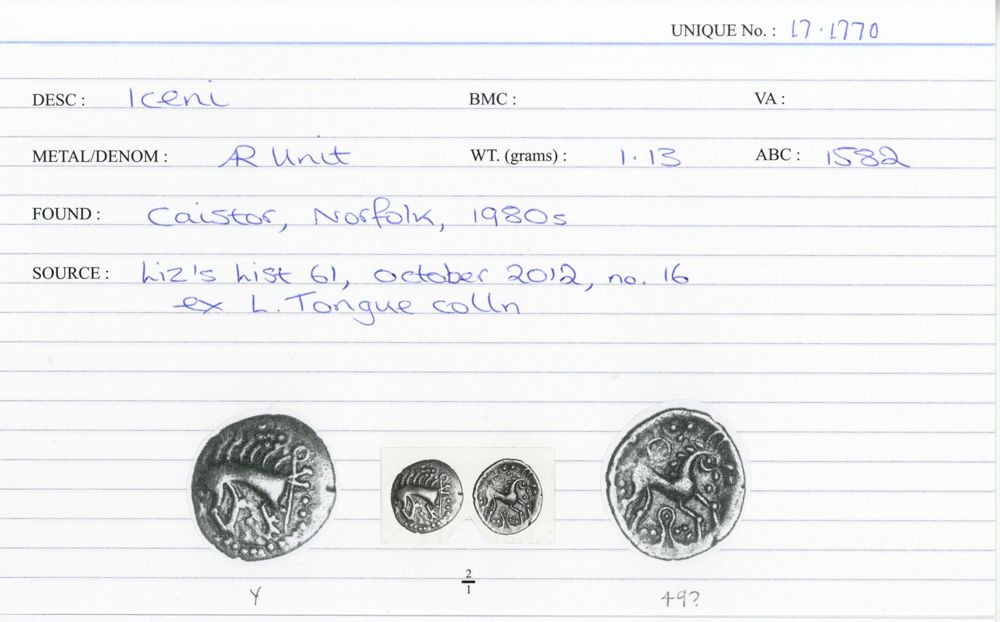 UNIQUE No. : 17.1770
DESC : Iceni BMC : VA :
METAL/DENOM : AR Unit WT. (grams) : 1.13 ABC : 1582
FOUND : Caistor, Norfolk, 1980s
SOURCE : Liz's List 61, October 2012, no. 16
ex L. Tongue colln
2
1
Y 49?